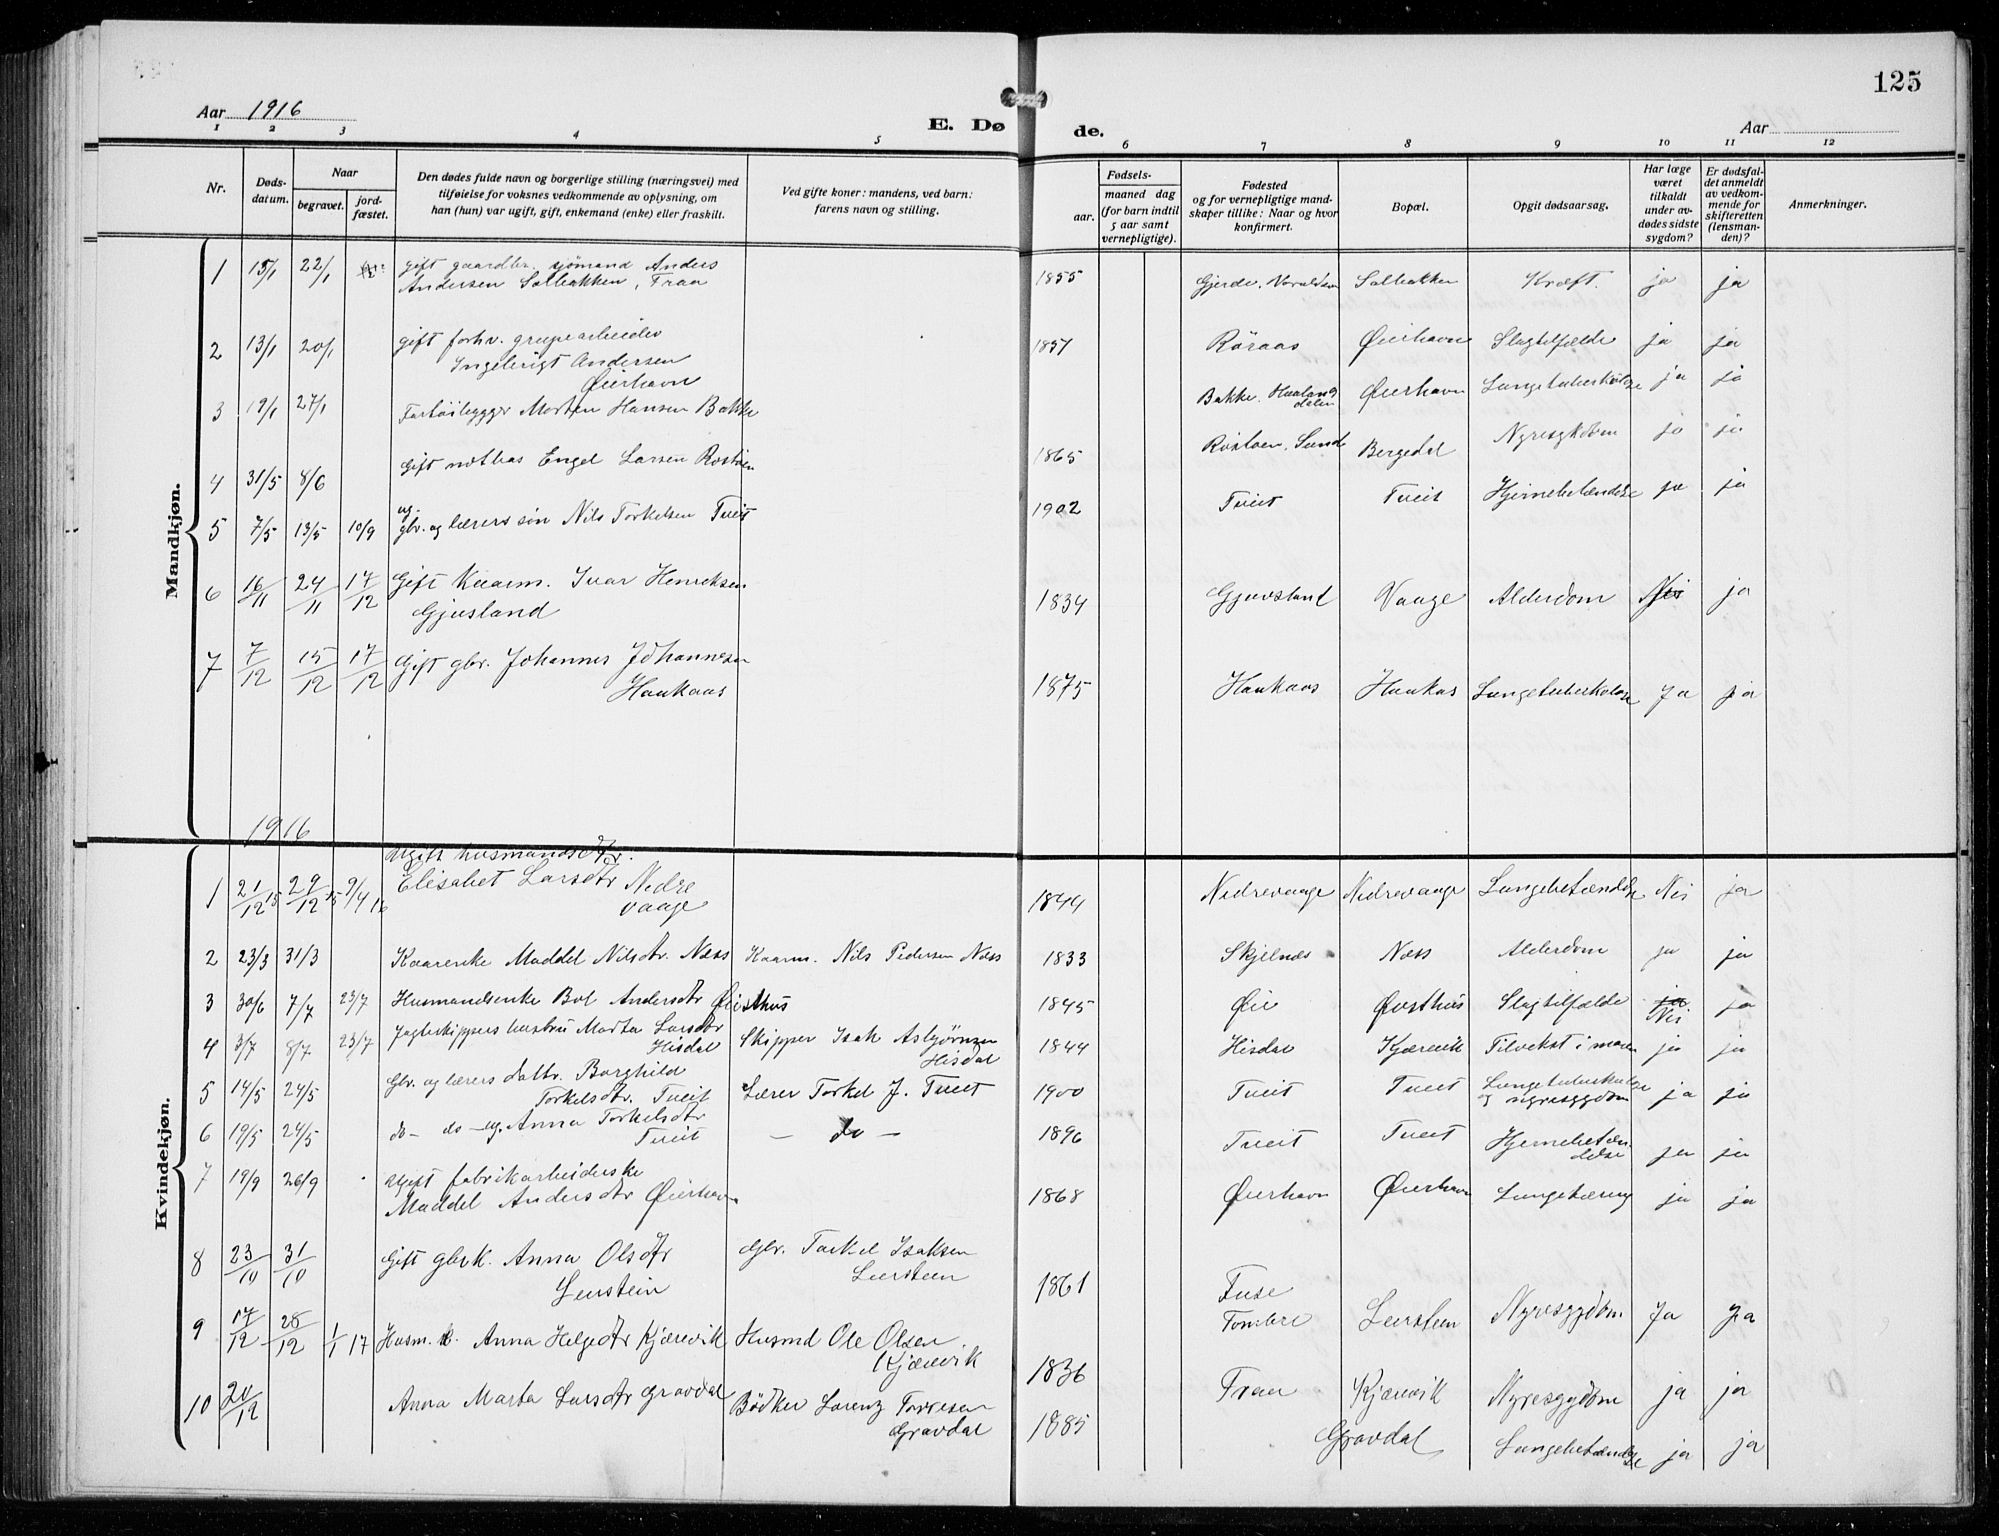 125
Aar 1916
E. Døde.
Aar
1 2 3 4 5 6 7 8 9 10 11 12
Nr.
Døds-
datum.
Naar
begravet.
jord-
fæstet.
Den dødes fulde navn og borgerlige stilling (næringsvei) med
tilføielse for voksnes vedkommende av oplysning, om
han (hun) var ugift, gift, enkemand (enke) eller fraskilt.
Ved gifte koner: mandens, ved barn:
farens navn og stilling.
Fødsels-
aar.
maaned dag
(for barn indtil
5 aar samt
vernepligtige).
Fødested
og for vernepligtige mand-
skaper tillike: Naar og hvor
konfirmert.
Bopæl.
Opgit dødsaarsag.
Har læge
været
tilkaldt
under av-
dødes sidste
sygdom?
Er dødsfal-
det anmeldt
av vedkom-
mende for
skifteretten
(lensman-
den)?
Anmerkninger.
Mandkjøn.
1 15/1 22/1 gift gaardbr. sjömand Anders
Andersen Solbakken, Fraa
1855 Gjerde, Solbakken Kræft. ja ja
2 13/1 20/1 gift forh. grubearbeider
Ingebrigt Andersen
Øierhavn
1857 Röraas Øierhavn Slagtilfælde ja ja
3 19/1 27/1 Morten Hansen Bakke
Bakke, Øierhavn Lungetuberkulose ja ja
4 31/5 8/6 Gift notbas Engel Larsen Rostøen
1865 Rostøen, Sund Bergedal Nyresygdom ja ja
5 7/5 13/5 10/9 ug.
gbr. og lærers søn Nils Torkelsen Tveit
1902 Tveit Tveit Hjernebetændelse ja ja
6 16/11 24/11 17/12 Gift Kaarm. Ivar Henriksen
Gjuvsland
1834 Gjuvsland Vaage Alderdom Nei ja
7 7/12 15/12 17/12 Gift gbr. Johannes Johannesen
Haukaas
1875 Haukaas Haukas Lungetuberkulose Ja ja
1916
Kvindekjøn.
1 21/12 15 29/12 15 9/4 16 Ugift husmandsdtr.
Elisabet Larsdtr Nedre
vaage
1844 Nedrevaage Nedrevaage Lungebetændelse Nei ja
2 23/3 31/3 Kaarenke Maddel Nilsdtr. Næss Kaarm. Nils Pedersen Næss
1833 Skjelnæs Næss Alderdom ja ja
3 30/6 7/7 23/7 Husmandsenke Bol Andersdtr Øiesthus
1845 Øie Øvsthus Slagtilfælde ja Nei ja
4 3/7 8/7 23/7 Jagteskippers hustru Marta Larsdtr
Hisdal
Skipper Isak Asbjörnsen
Hisdal
1844 Hisdal Kjærevik Tilvekst i maven ja ja
5 14/5 24/5 Gbr. og lærers dattr. Borghild
Torkelsdtr. Tveit
Lærer Torkel J. Tveit
1900 Tveit Tveit Lungetuberkulose
og nyresygdom ja ja
6 19/5 24/5 do - do - ug. Anna Torkelsdtr
Tveit
— do —
1896 Tveit Tveit Hjernebetæn-
delse ja ja
7 19/9 26/9 Ugift fabrikarbeiderske
Maddel Andersdtr Øierhavn
1868 Øierhavn Øierhavn Lungetæring ja ja
8 23/10 31/10 Gift gbrk. Anna Olsdtr
Leirstein
Gbr. Torkel Isaksen
Leirsteen
1861 Fuse
Tombre Leirsteen Nyresygdom Ja ja
9 17/12 28/12 1/1 17 Husm. k. Anna Helgedtr Kjærevik Husmd Ole Olsen
Kjærevik
1836 Fraa Kjærevik Nyresygdom ja ja
10 20/12 Anna Marta Larsdtr Gravdal Bödker Lorenz Torresen
Gravdal
1885 Gravdal Lungebetændelse ja ja